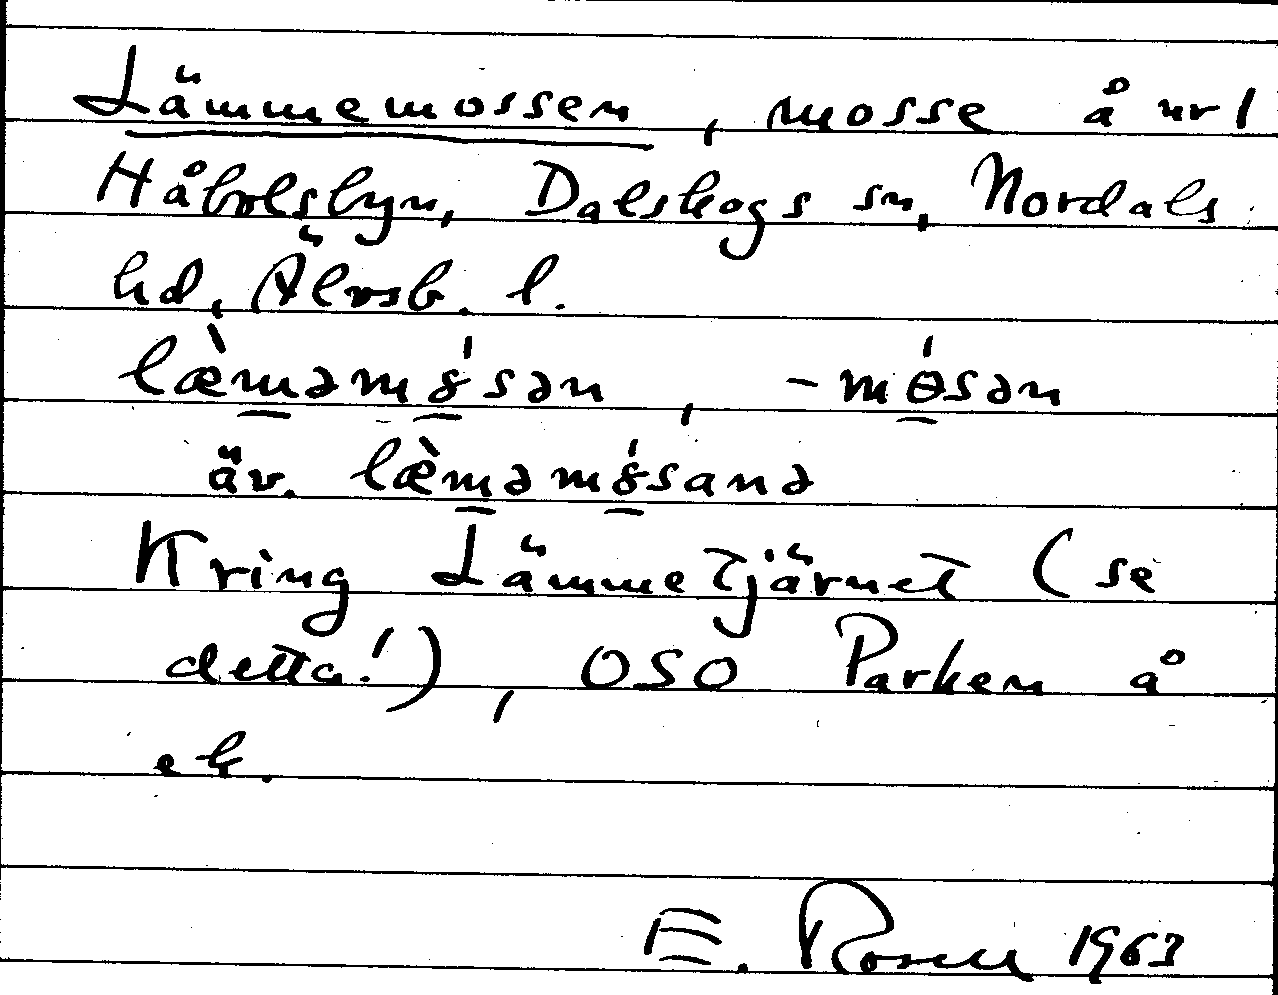 Lämmemossen, mosse å nr 1
Håbolsbyn, Dalskogs sn, Nordals
hd, Älvsb. l.
læ̀məmȣ́sən, -mɵ́sən
äv. læ̀məmȣ́sanə
Kring Lämmetjärnet (se
detta!), OSO Parken å
ek.
E. Rosell 1963